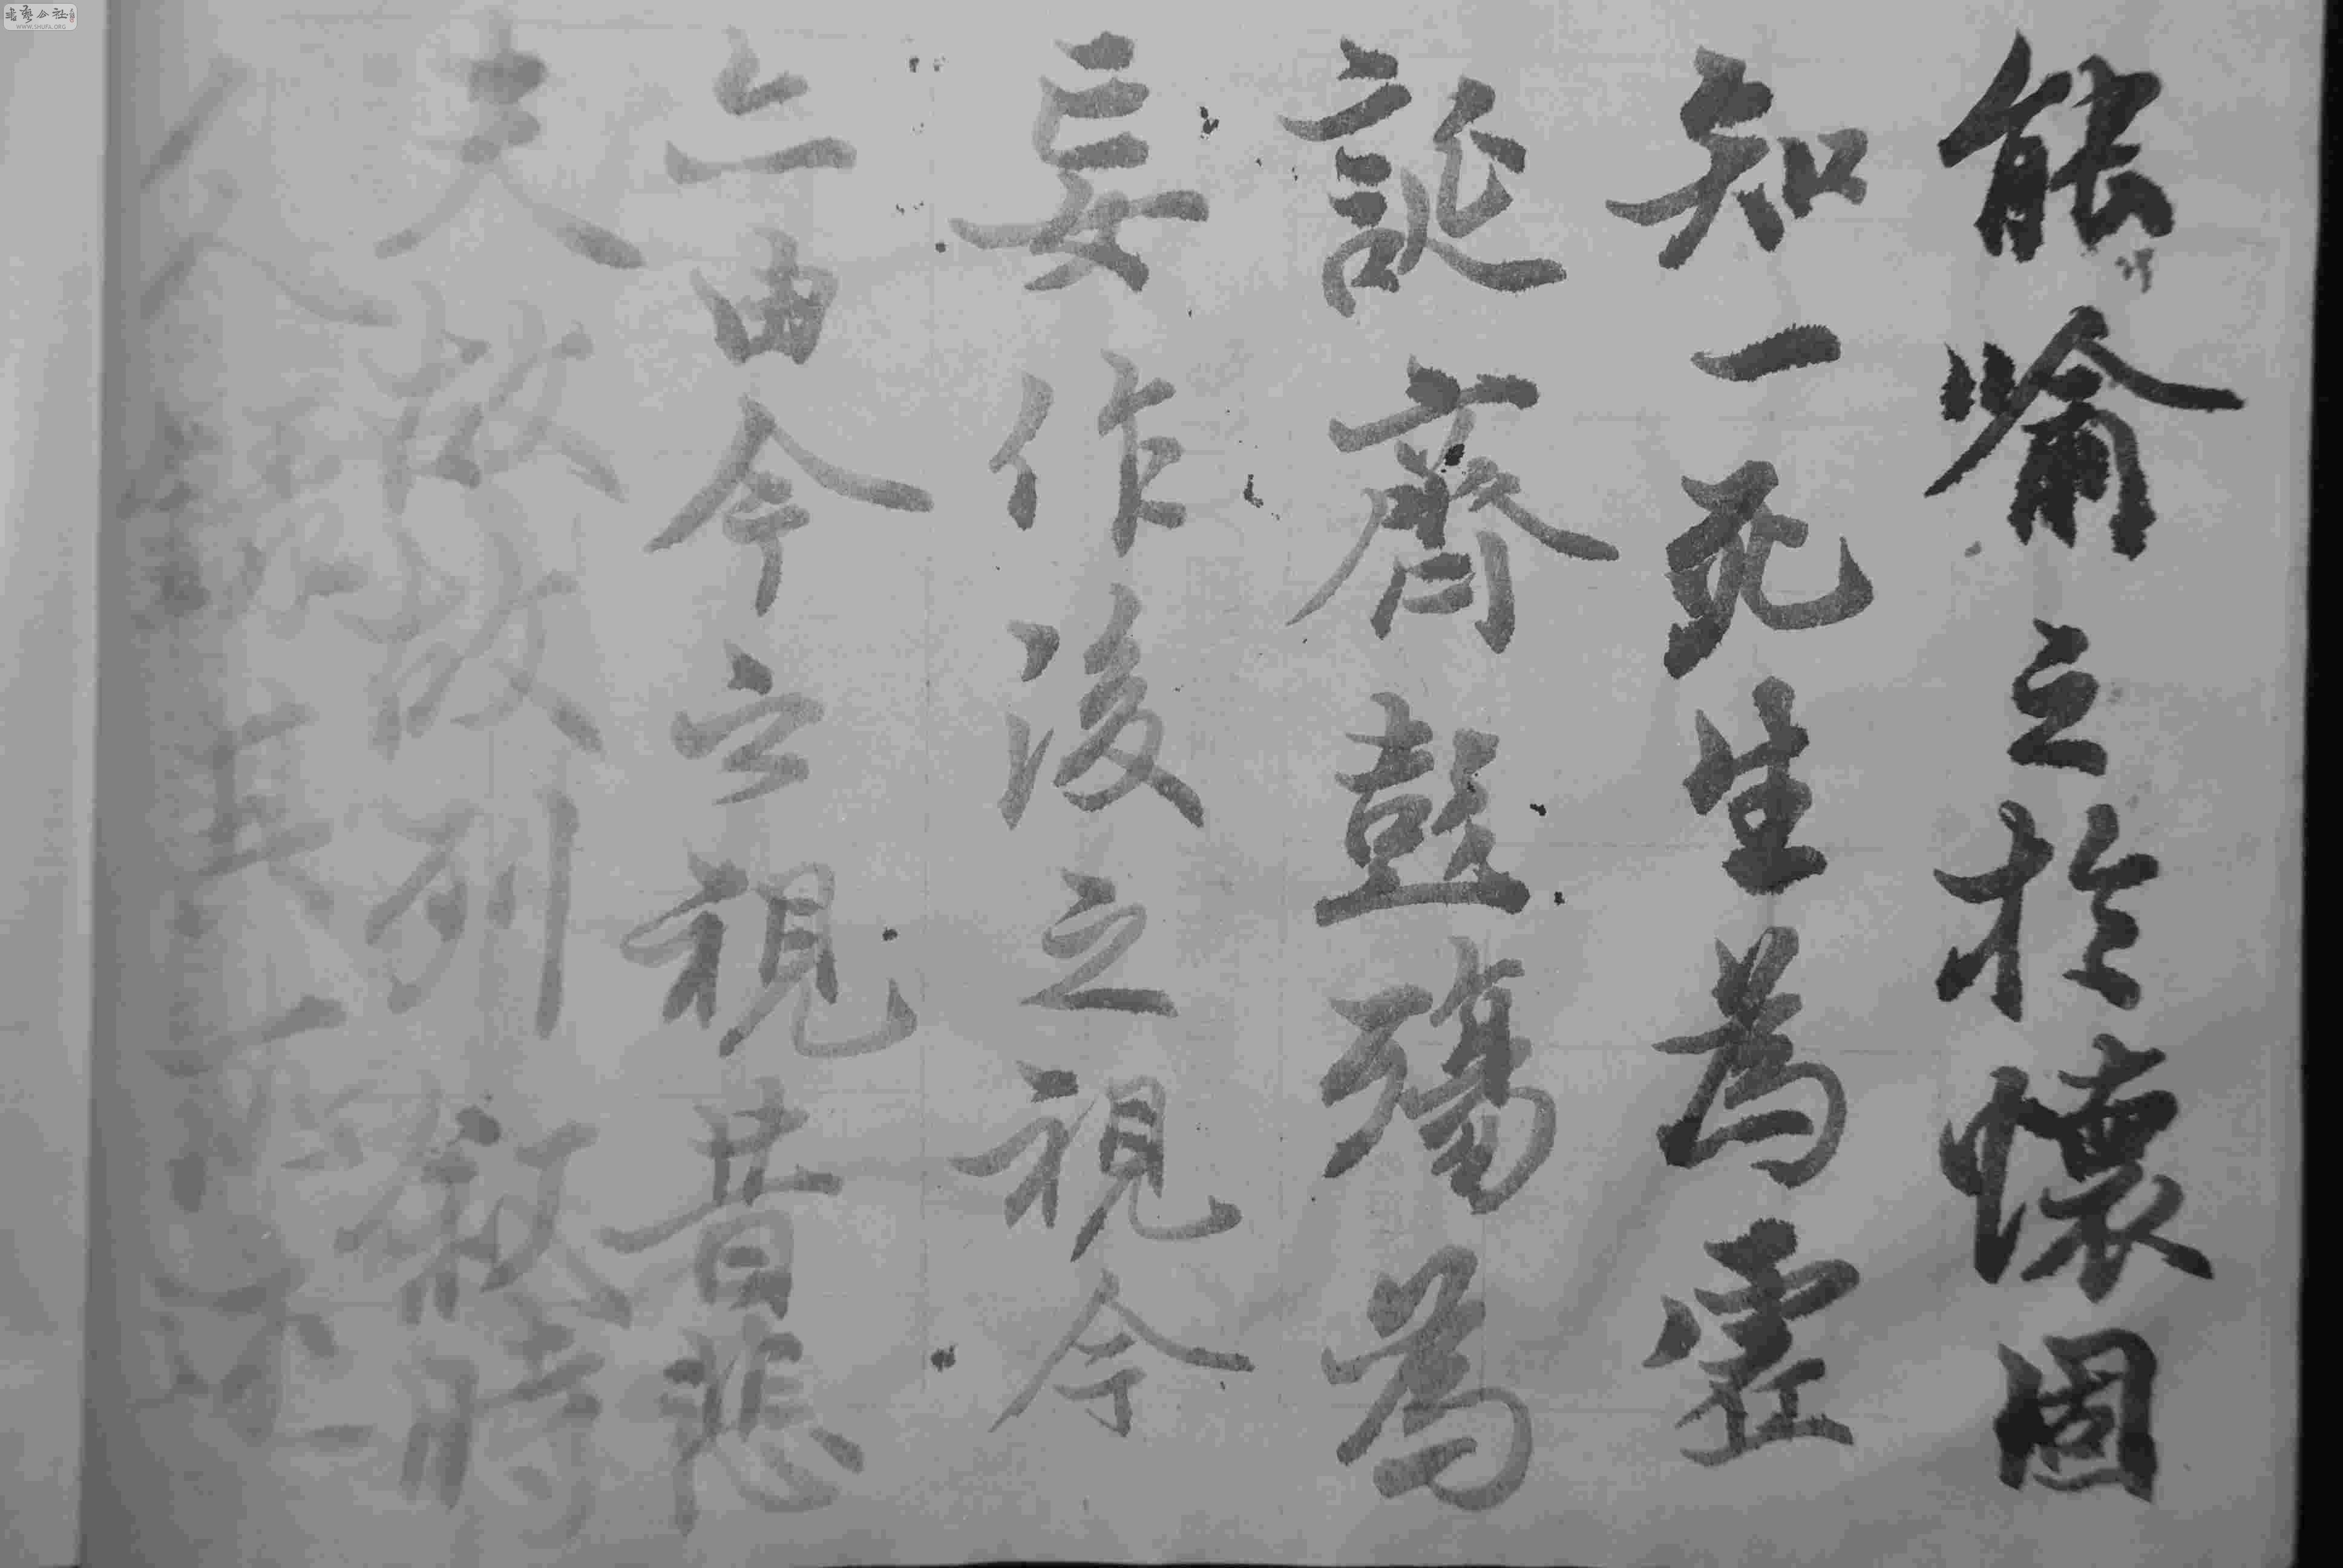 能喻之於懷固
知一死生為虛
誕齊彭殤為
妄作後之視今
亦由今之視昔悲
夫故故列叙時
人錄其
WWW.SHUFA.ORG